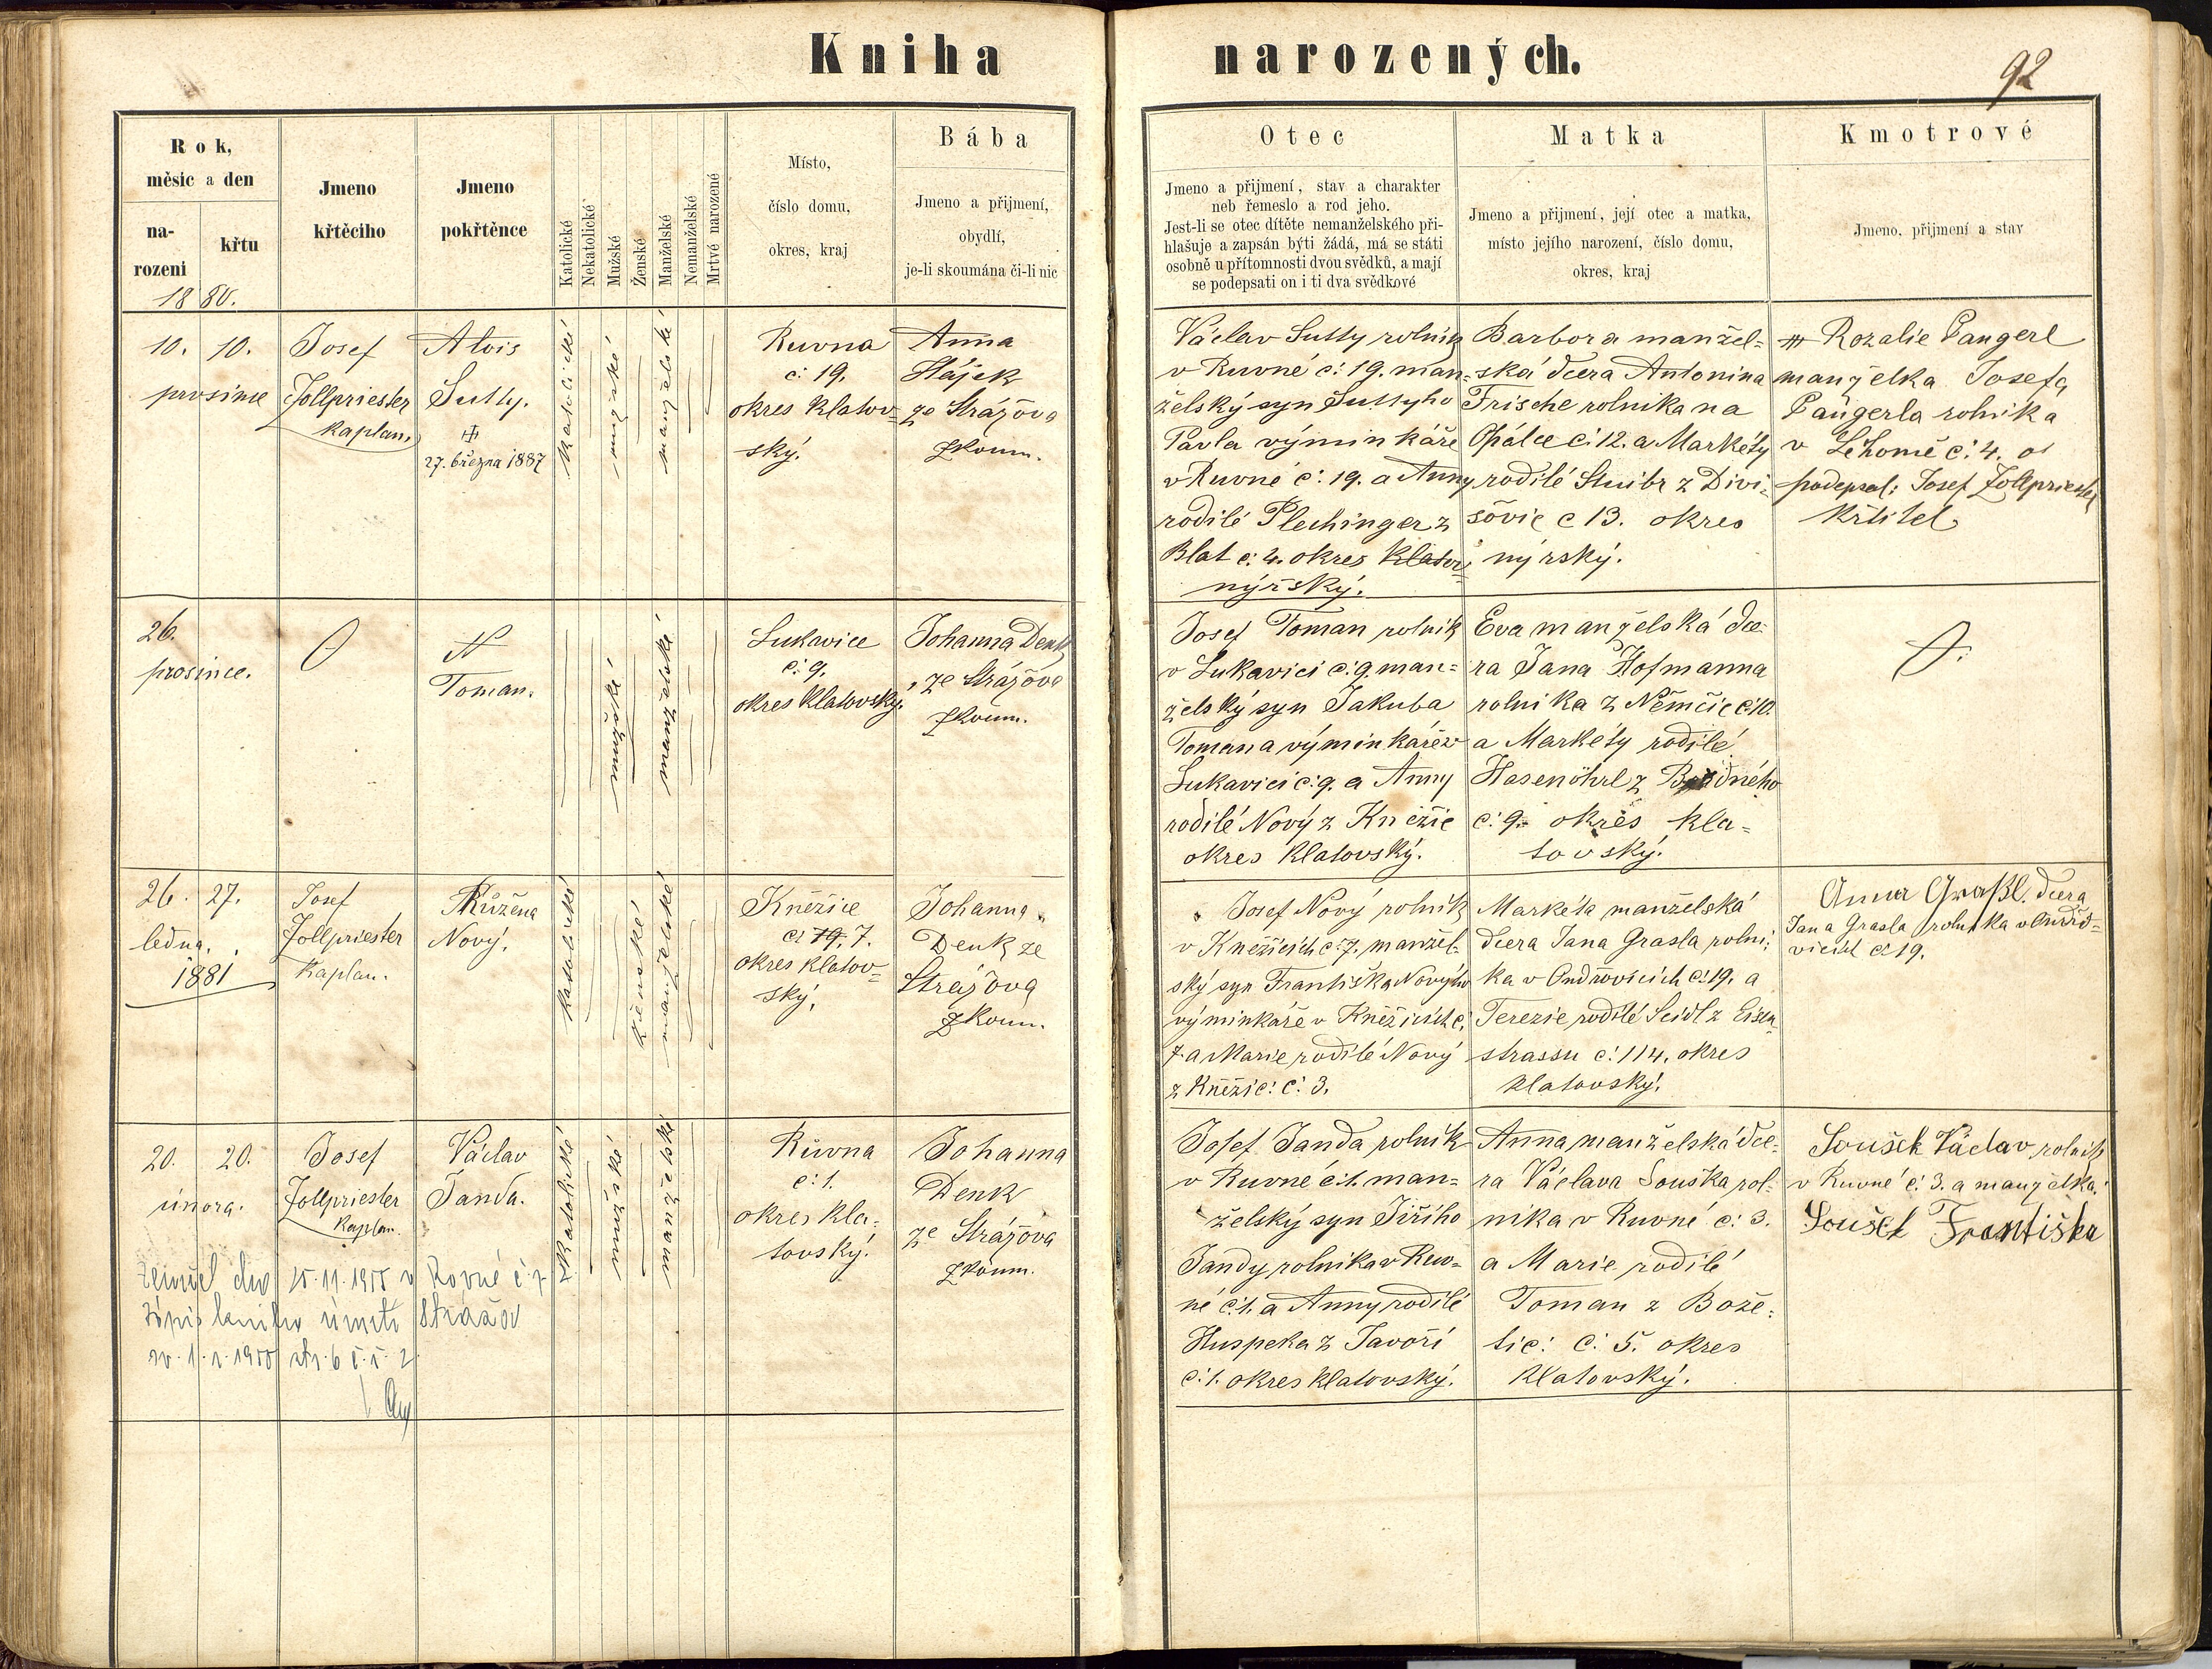 Kniha narozených.
92
Rok,
měsíc a den
na-
rozeni
křtu
1880.
Jmeno
křtěcího
Jmeno
pokřtěnce
Katolické
Nekatolické
Mužské
Ženské
Manželské
Nemanželské
Mrtvé narozené
Místo,
číslo domu,
okres, kraj
Bába
Jmeno a přijmení,
obydlí,
je-li skoumána či-li nic
Otec
Jmeno a přijmení, stav a charakter
neb řemeslo a rod jeho.
Jest-li se otec dítěte nemanželského při-
hlašuje a zapsán býti žádá, má se státi
osobně u přítomnosti dvou svědků, a mají
se podepsati on i ti dva svědkové
Matka
Jmeno a přijmení, její otec a matka,
místo jejího narození, číslo domu,
okres, kraj
Kmotrové
Jmeno, přijmení a stav
10. 10.
prosince
Josef
Zollpriester
kaplan.
Alois
Sutty.
27. března 1887
katolické
mužské
manželské
Ruvna
č: 19.
okres Klatov-
ský.
Anna
Hájek
ze Strážova
zkoum.
Václav Sutty rolník
v Ruvné č: 19. man-
želský syn Suttyho
Pavla výminkáře
v Ruvné č: 19. a Anny
rodilé Plechinger z
Blat č: 4. okres Klatov
nýrský.
Barbora manžel=
ská dcera Antonina
Frische rolnika na
Opálce č: 12. a Markéty
rodilé Stuibr z Divi-
šovic č 13. okres
nýrský.
Rozalie Pangerl
manželka Josefa
Pangerla rolnika
v Lehomě č: 4.
podepsal: Josef Zollpriester
křtitel
26.
prosince.
N
Toman.
mužské
manželské
Lukavice
č: 9.
okres Klatovský.
Johanna Denk
ze Strážova
zkoum.
Josef Toman rolník
v Lukavici č: 9. man=
želský syn Jakuba
Tomana výminkáře v
Lukavici č: 9. a Anny
rodilé Nový z Kněžic
okres Klatovský.
Eva manželská dce-
ra Jana Hofmanna
rolnika z Němčic č: 10.
a Markéty rodilé
Hasenöhrl z
č: 9. okres kla=
tovský.
26. 27.
ledna.
1881
Josef
Zollpriester
kaplan.
Růžena
Nový.
katolické
ženské
manželské
Kněžice
č: 19. 7.
okres Klatov=
ský.
Johanna
Denk ze
Strážova
zkoum.
Josef Nový rolník
v Kněžicích č: 7. manžel-
ský syn Františka Nového
výminkáře v Kněžicích č.
7. a Marie rodilé Nový
z Kněžic: č: 3.
Markéta manželská
dcera Jana Grasla rolni-
ka v Ondřovicích č: 19. a
Terezie rodilé Seidl z Eisen-
strassu č: 114. okres
klatovský.
Anna Graßl. dcera
Jana Grasla rolnika v Ondřo=
vicích č. 19.
20. 20.
února.
Josef
Zollpriester
kaplan.
Václav
Janda.
katolické
mužské
manželské
Růvna
č: 1.
okres kla-
tovský.
Johanna
Denk
ze Strážova
zkoum.
Josef Janda rolník
v Ruvné č: 1. man=
želský syn Jiřího
Jandy rolnika v Ruv=
né č: 1. a Anny rodilé
Huspeka z Javoří
č: 1. okres klatovský.
Anna manželská dce-
ra Václava Souška rol-
nika v Ruvné č: 3.
a Marie rodilé
Toman z Bože-
tic: č. 5. okres
Klatovský.
Soušek Václav rolník
v Ruvné č: 3. a manželka
Soušek Františka
Zemřel dne 15.11.1955 v Rovné č. 7
Strážov